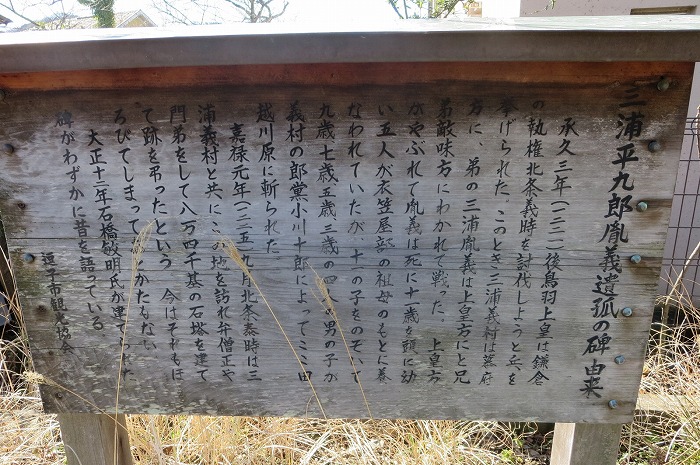 三浦平九郎胤義遺孤の碑由来
承久三年(一二二一)後鳥羽上皇は鎌倉
の執権北条義時を討伐しようと兵を
挙げられた。このとき三浦義村は幕府
方に、弟の三浦胤義は上皇方にと兄
弟敵味方にわかれて戦った。上皇方
がやぶれて胤義は死に十一歳を頭に幼
い五人が衣笠屋部の祖母のもとに養
なわれていたが、十一の子をのぞいて
九歳七歳五歳三歳の四人の男の子が
義村の郎党小川十郎によってここ田
越川原に斬られた。
嘉禄元年(一二二五)九月北条泰時は三
浦義村と共にこの地を訪れ弁僧正や
門弟をして八万四千基の石塔を建て
て跡を弔ったという 今はそれもほ
ろびてしまって とかたもない
大正十二年石橋敏明氏が建てられた
碑がわずかに昔を語っている
逗子市観光協会